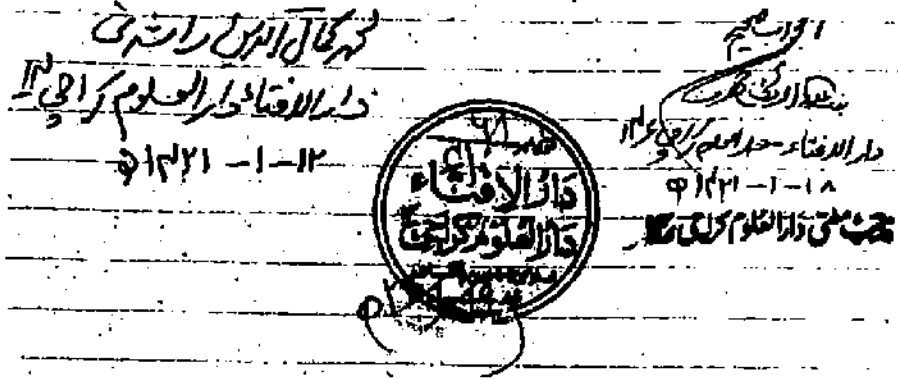 الجواب صحیح
بندہ
دارالافتاء - دارالعلوم کراچی ۱۴
۱۸-۱-۱۴۲۱ھ
مفتی دارالعلوم کراچی
محمد کمال الدین راشدی
دارالافتاء دارالعلوم کراچی ۱۴
۱۲-۱-۱۴۲۱ھ
دَارُ الافتَاء
دَارُ العُلوم کراچی